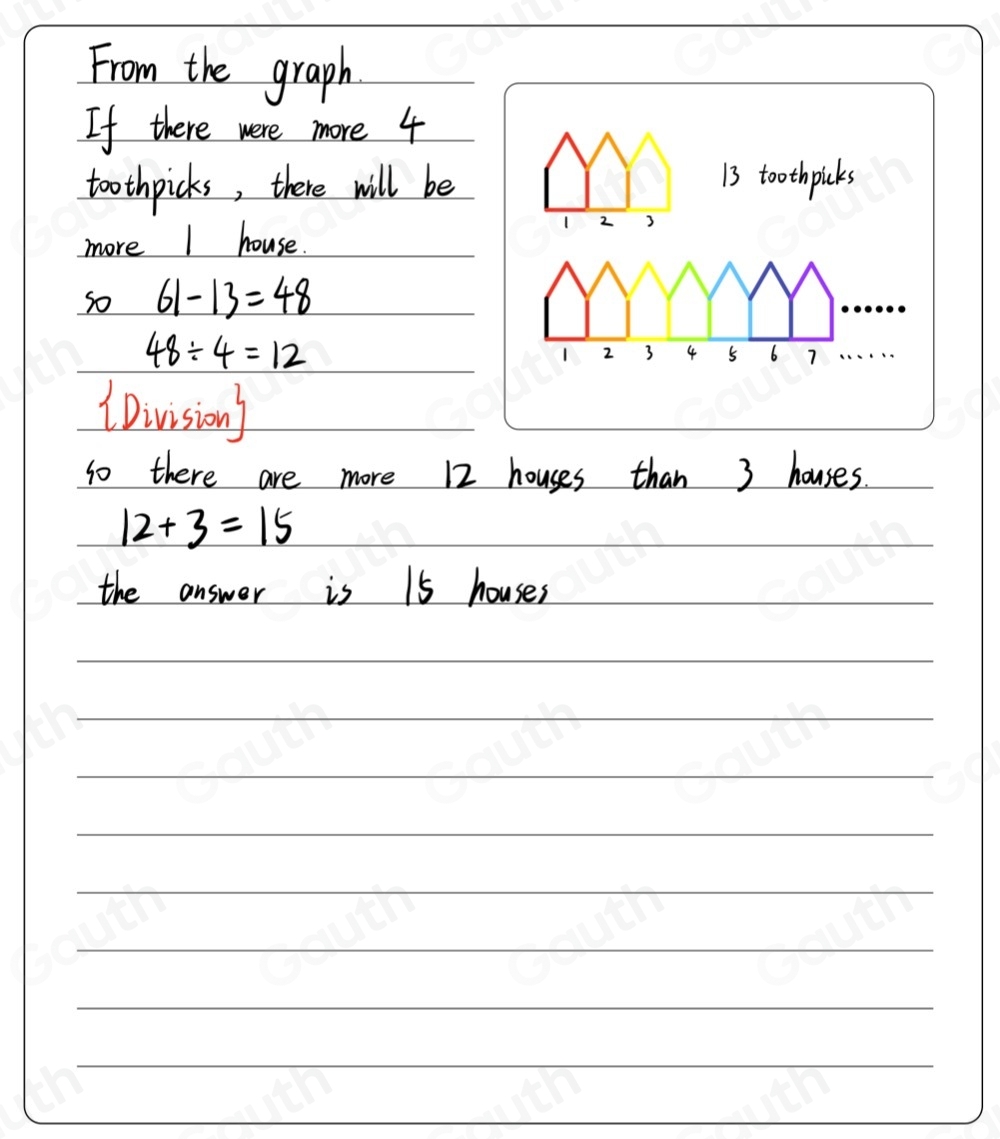 From the graph.
If there were more 4
toothpicks, there will be
more 1 house.
so 61-13=48
48÷4=12
{Division}
so there are more 12 houses than 3 houses.
12+3=15
the answer is 15 houses
13 toothpicks
1 2 3
1 2 3 4 5 6 7 ......
Gauth